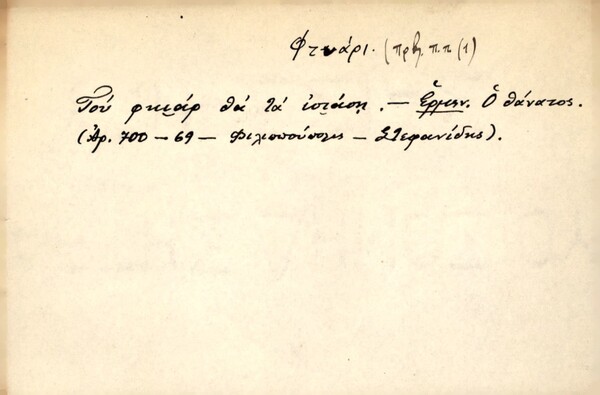 Φτυάρι. (πρβ. π.π (1)
Τού φκιάρ θά τά ἰσιάση. — Ἑρμην. Ὁ θάνατος.
(Ἀρ. 700 — 69 — Φιλιππούπολις — Στεφανίδης).